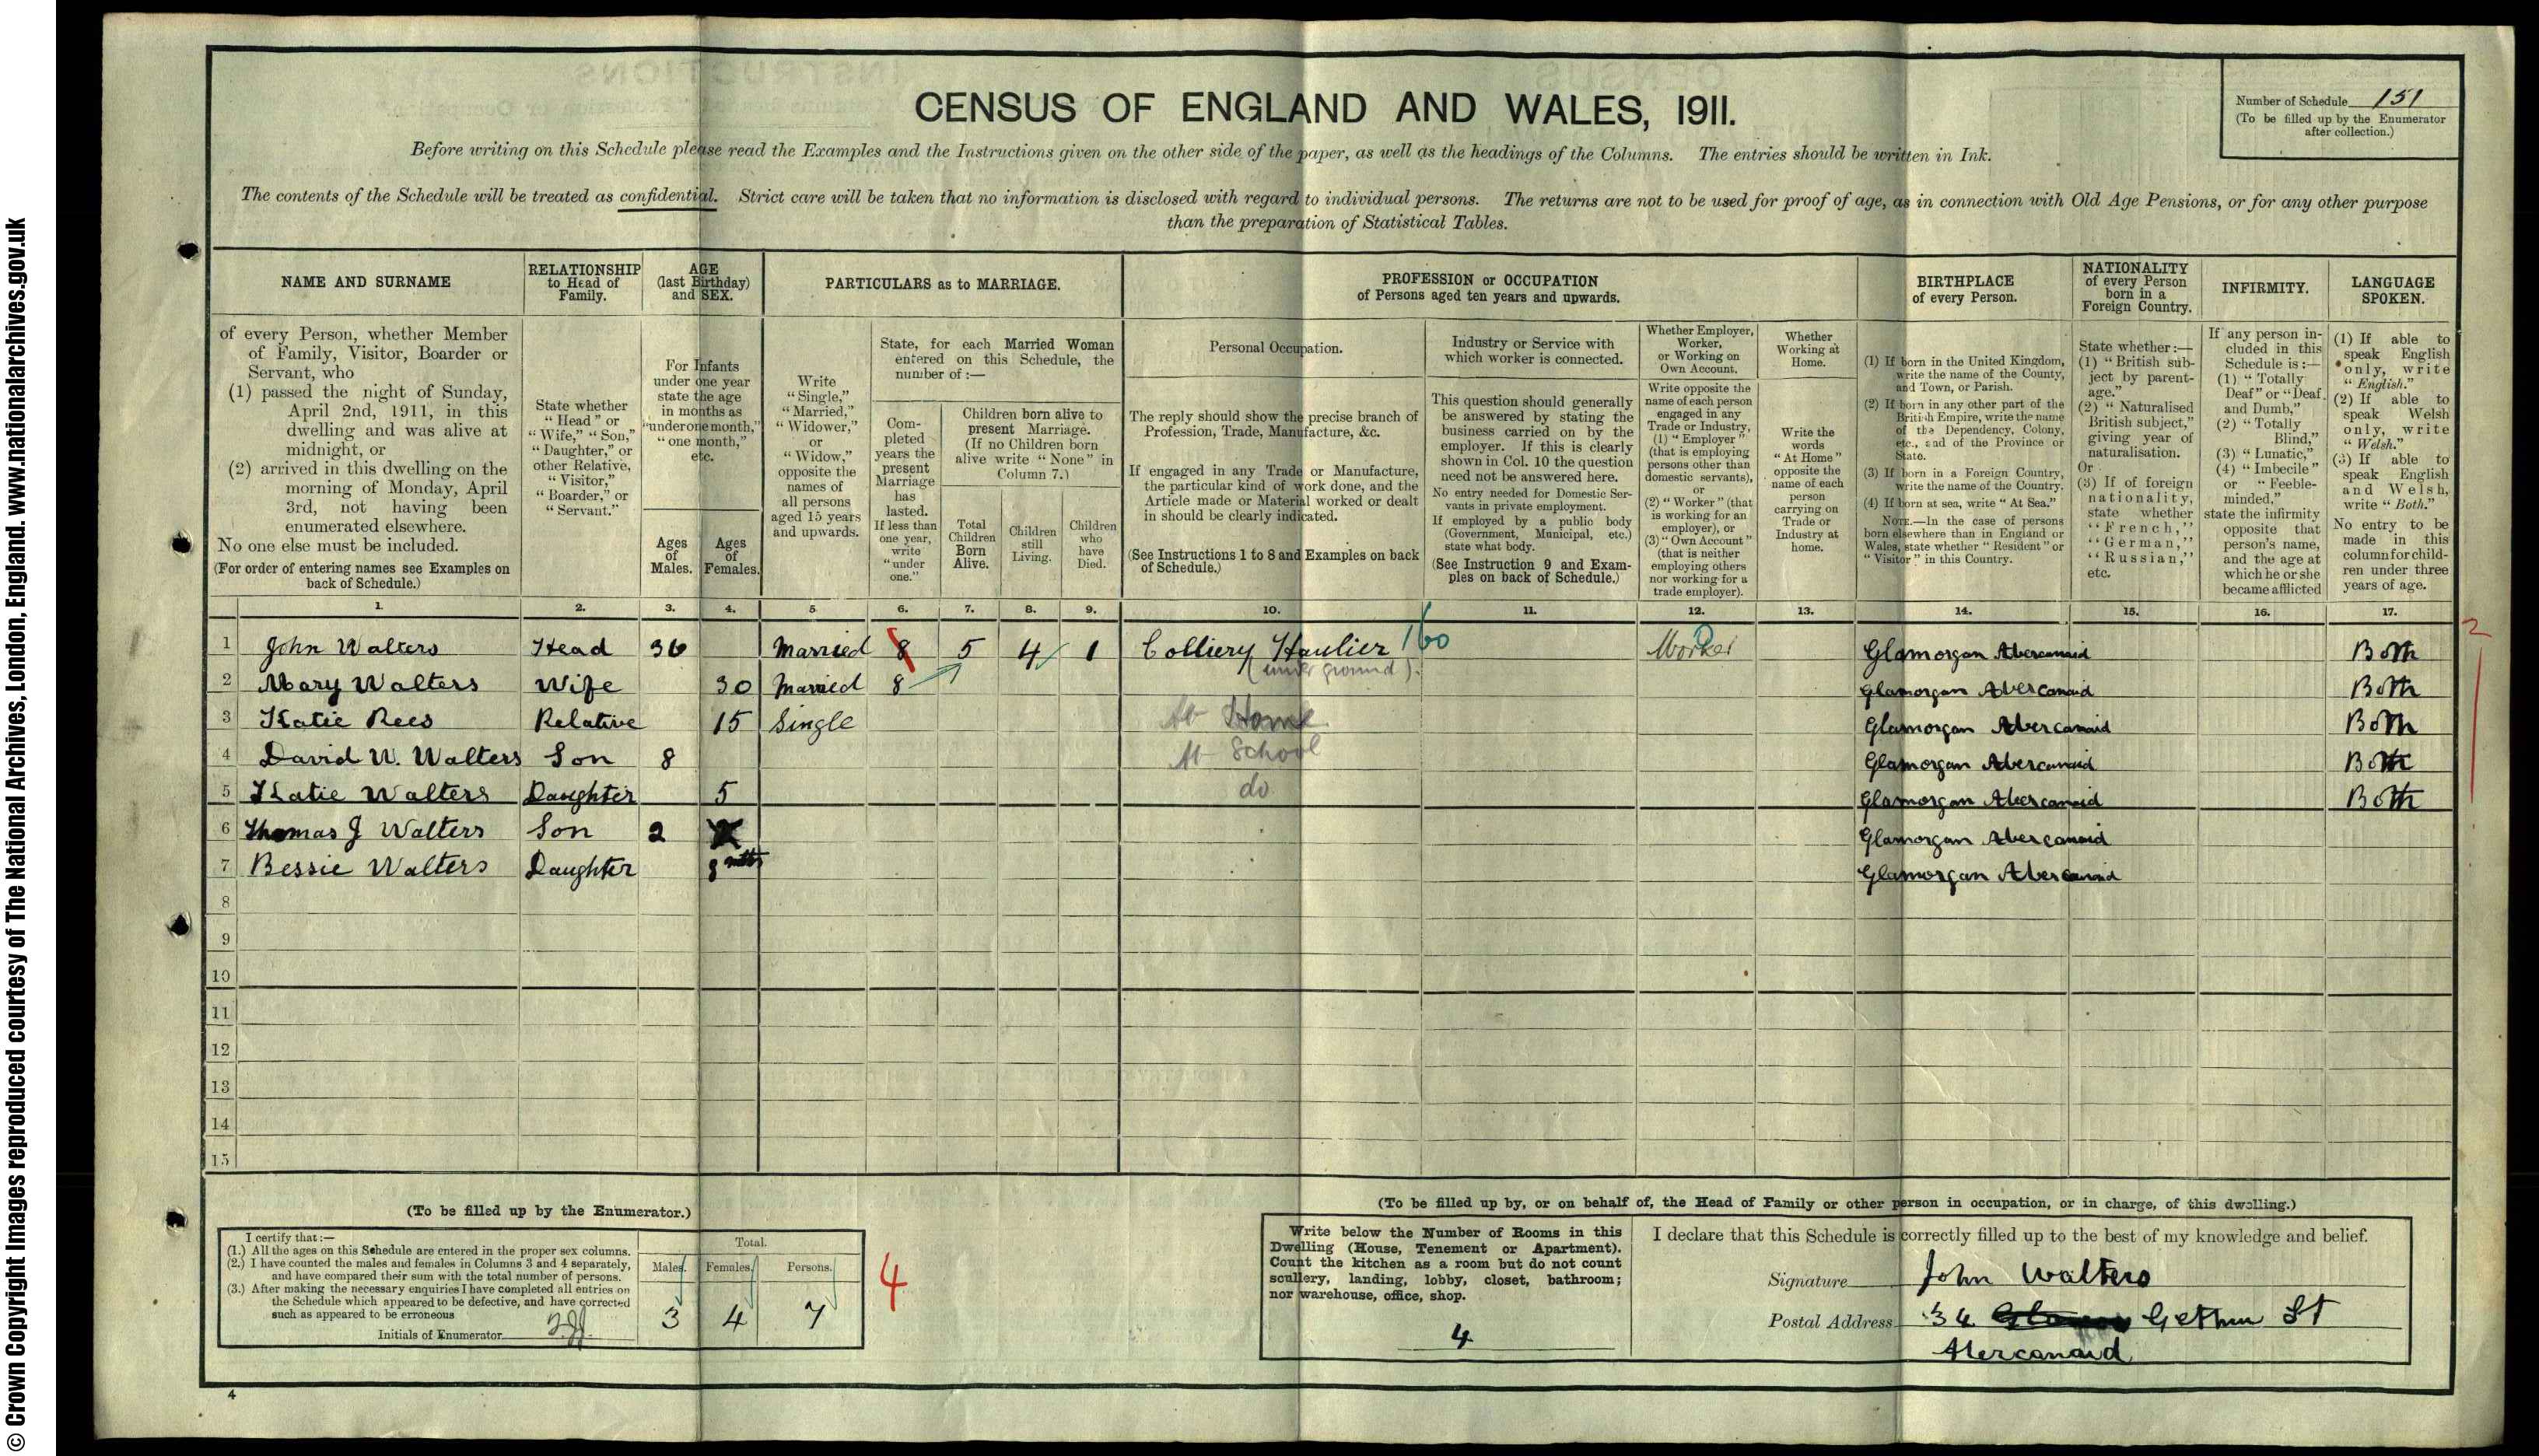 © Crown Copyright Images reproduced courtesy of The National Archives, London, England. www.nationalarchives.gov.uk
CENSUS OF ENGLAND AND WALES, 1911.
Number of Schedule 151
(To be filled up by the Enumerator
after collection.)
Before writing on this Schedule please read the Examples and the Instructions given on the other side of the paper, as well as the headings of the Columns. The entries should be written in Ink.
The contents of the Schedule will be treated as confidential. Strict care will be taken that no information is disclosed with regard to individual persons. The returns are not to be used for proof of age, as in connection with Old Age Pensions, or for any other purpose
than the preparation of Statistical Tables.
NAME AND SURNAME
of every Person, whether Member
of Family, Visitor, Boarder or
Servant, who
(1) passed the night of Sunday,
April 2nd, 1911, in this
dwelling and was alive at
midnight, or
(2) arrived in this dwelling on the
morning of Monday, April
3rd, not having been
enumerated elsewhere.
No one else must be included.
(For order of entering names see Examples on
back of Schedule.)
RELATIONSHIP
to Head of
Family.
State whether
"Head" or
"Wife," "Son,"
"Daughter," or
other Relative,
"Visitor,"
"Boarder," or
"Servant."
AGE
(last Birthday)
and SEX.
For Infants
under one year
state the age
in months as
"under one month,"
"one month,"
etc.
Ages
of
Males.
Ages
of
Females.
PARTICULARS as to MARRIAGE.
Write
"Single,"
"Married,"
"Widower,"
or
"Widow,"
opposite the
names of
all persons
aged 15 years
and upwards.
State, for each Married Woman
entered on this Schedule, the
number of :—
Com-
pleted
years the
present
Marriage
has
lasted.
If less than
one year,
write
"under
one."
Children born alive to
present Marriage.
(If no Children born
alive write "None" in
Column 7.)
Total
Children
Born
Alive.
Children
still
Living.
Children
who
have
Died.
PROFESSION or OCCUPATION
of Persons aged ten years and upwards.
Personal Occupation.
The reply should show the precise branch of
Profession, Trade, Manufacture, &c.
If engaged in any Trade or Manufacture,
the particular kind of work done, and the
Article made or Material worked or dealt
in should be clearly indicated.
(See Instructions 1 to 8 and Examples on back
of Schedule.)
Industry or Service with
which worker is connected.
This question should generally
be answered by stating the
business carried on by the
employer. If this is clearly
shown in Col. 10 the question
need not be answered here.
No entry needed for Domestic Ser-
vants in private employment.
If employed by a public body
(Government, Municipal, etc.)
state what body.
(See Instruction 9 and Exam-
ples on back of Schedule.)
Whether Employer,
Worker,
or Working on
Own Account.
Write opposite the
name of each person
engaged in any
Trade or Industry,
(1) "Employer"
(that is employing
persons other than
domestic servants),
or
(2) "Worker" (that
is working for an
employer), or
(3) "Own Account"
(that is neither
employing others
nor working for a
trade employer).
Whether
Working at
Home.
Write the
words
"At Home"
opposite the
name of each
person
carrying on
Trade or
Industry at
home.
BIRTHPLACE
of every Person.
(1) If born in the United Kingdom,
write the name of the County,
and Town, or Parish.
(2) If born in any other part of the
British Empire, write the name
of the Dependency, Colony,
etc., and of the Province or
State.
(3) If born in a Foreign Country,
write the name of the Country.
(4) If born at sea, write "At Sea."
NOTE.—In the case of persons
born elsewhere than in England or
Wales, state whether "Resident" or
"Visitor" in this Country.
NATIONALITY
of every Person
born in a
Foreign Country.
State whether :—
(1) "British sub-
ject by parent-
age."
(2) "Naturalised
British subject,"
giving year of
naturalisation.
Or
(3) If of foreign
nationality,
state whether
"French,"
"German,"
"Russian,"
etc.
INFIRMITY.
If any person in-
cluded in this
Schedule is :—
(1) "Totally
Deaf" or "Deaf
and Dumb,"
(2) "Totally
Blind,"
(3) "Lunatic,"
(4) "Imbecile"
or "Feeble-
minded,"
state the infirmity
opposite that
person's name,
and the age at
which he or she
became afflicted
LANGUAGE
SPOKEN.
(1) If able to
speak English
only, write
"English."
(2) If able to
speak Welsh
only, write
"Welsh."
(3) If able to
speak English
and Welsh,
write "Both."
No entry to be
made in this
column for child-
ren under three
years of age.
1. 2. 3. 4. 5 6. 7. 8. 9. 10. 11. 12. 13. 14. 15. 16. 17.
1 John Walters Head 36 Married 8 5 4 1 Colliery Haulier 160 Worker Glamorgan Abercanaid Both 2
(under ground)
2 Mary Walters Wife 30 Married 8 Glamorgan Abercanaid Both
3 Katie Rees Relative 15 Single At Home Glamorgan Abercanaid Both
4 David W. Walters Son 8 At School Glamorgan Abercanaid Both
5 Katie Walters Daughter 5 do Glamorgan Abercanaid Both
6 Thomas J Walters Son 2 Glamorgan Abercanaid
7 Bessie Walters Daughter 8 mths Glamorgan Abercanaid
8
9
10
11
12
13
14
15
(To be filled up by the Enumerator.)
I certify that :—
(1.) All the ages on this Schedule are entered in the proper sex columns.
(2.) I have counted the males and females in Columns 3 and 4 separately,
and have compared their sum with the total number of persons.
(3.) After making the necessary enquiries I have completed all entries on
the Schedule which appeared to be defective, and have corrected
such as appeared to be erroneous
Initials of Enumerator
Total.
Males. Females. Persons.
3 4 7
4
(To be filled up by, or on behalf of, the Head of Family or other person in occupation, or in charge, of this dwelling.)
Write below the Number of Rooms in this
Dwelling (House, Tenement or Apartment).
Count the kitchen as a room but do not count
scullery, landing, lobby, closet, bathroom;
nor warehouse, office, shop.
4
I declare that this Schedule is correctly filled up to the best of my knowledge and belief.
Signature John Walters
Postal Address 34 Gethin St
Abercanaid
4